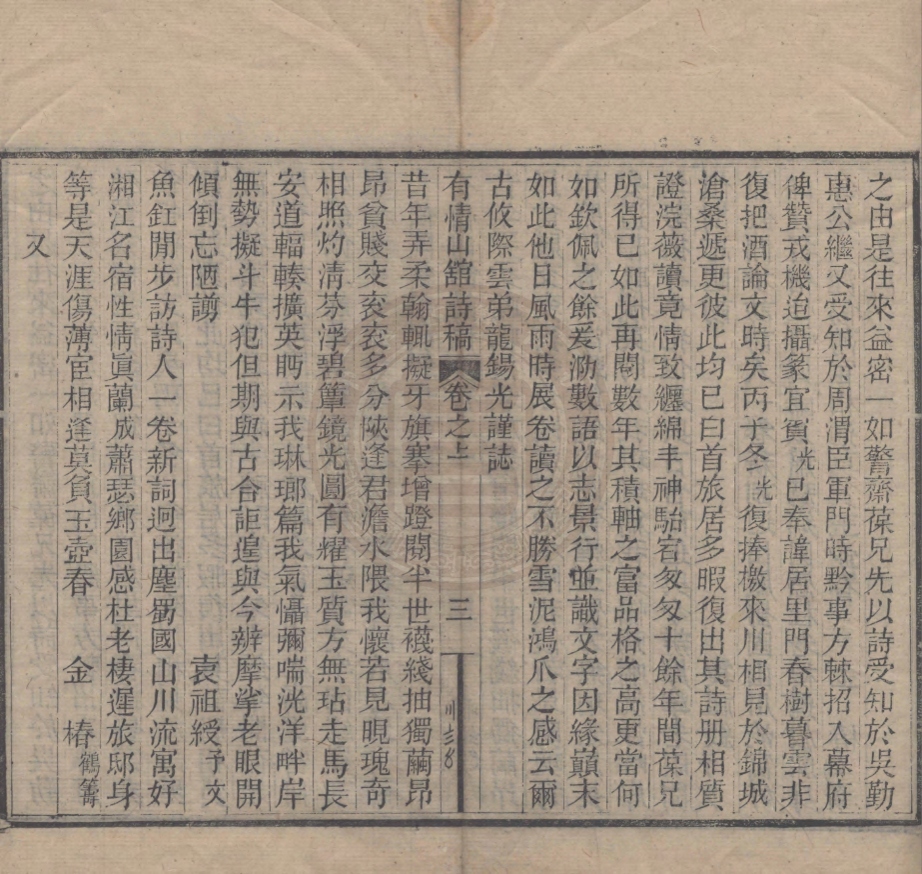 之由是往來益密一如警齋葆兄先以詩受知於吳勤
惠公繼又受知於周渭臣軍門時黔事方棘招入幕府
俾贊戎機迨攝篆宜賓光已奉諱居里門春樹暮雲非
復把酒論文時矣丙子冬光復捧檄來川相見於錦城
滄桑遞更彼此均已白首旅居多暇復出其詩册相質
證浣薇讀竟情致纏綿丰神駘宕匆匆十餘年間葆兄
所得已如此再閱數年其積軸之富品格之高更當何
如欽佩之餘爰泐數語以志景行並識文字因緣巔末
如此他日風雨時展卷讀之不勝雪泥鴻爪之感云爾
古攸際雲弟龍錫光謹誌
有情山舘詩稿 卷之上 三
昔年弄柔翰輒擬牙旗搴增蹬閱半世襪綫抽獨繭昂
昂貧賤交衮衮多分陝逢君澹水隈我懷若見晛瑰奇
相照灼清芬浮碧簟鏡光圓有耀玉質方無玷走馬長
安道輻輳擴英眄示我琳瑯篇我氣懾彌喘洸洋畔岸
無勢擬斗牛犯但期與古合詎遑與今辨摩挲老眼開
傾倒忘陋謭 袁祖綬予文
魚釭閒步訪詩人一卷新詞迥出塵蜀國山川流寓好
湘江名宿性情眞蘭成蕭瑟鄉園感杜老棲遲旅邸身
等是天涯傷薄宦相逢莫負玉壺春 金 椿鶴籌
又